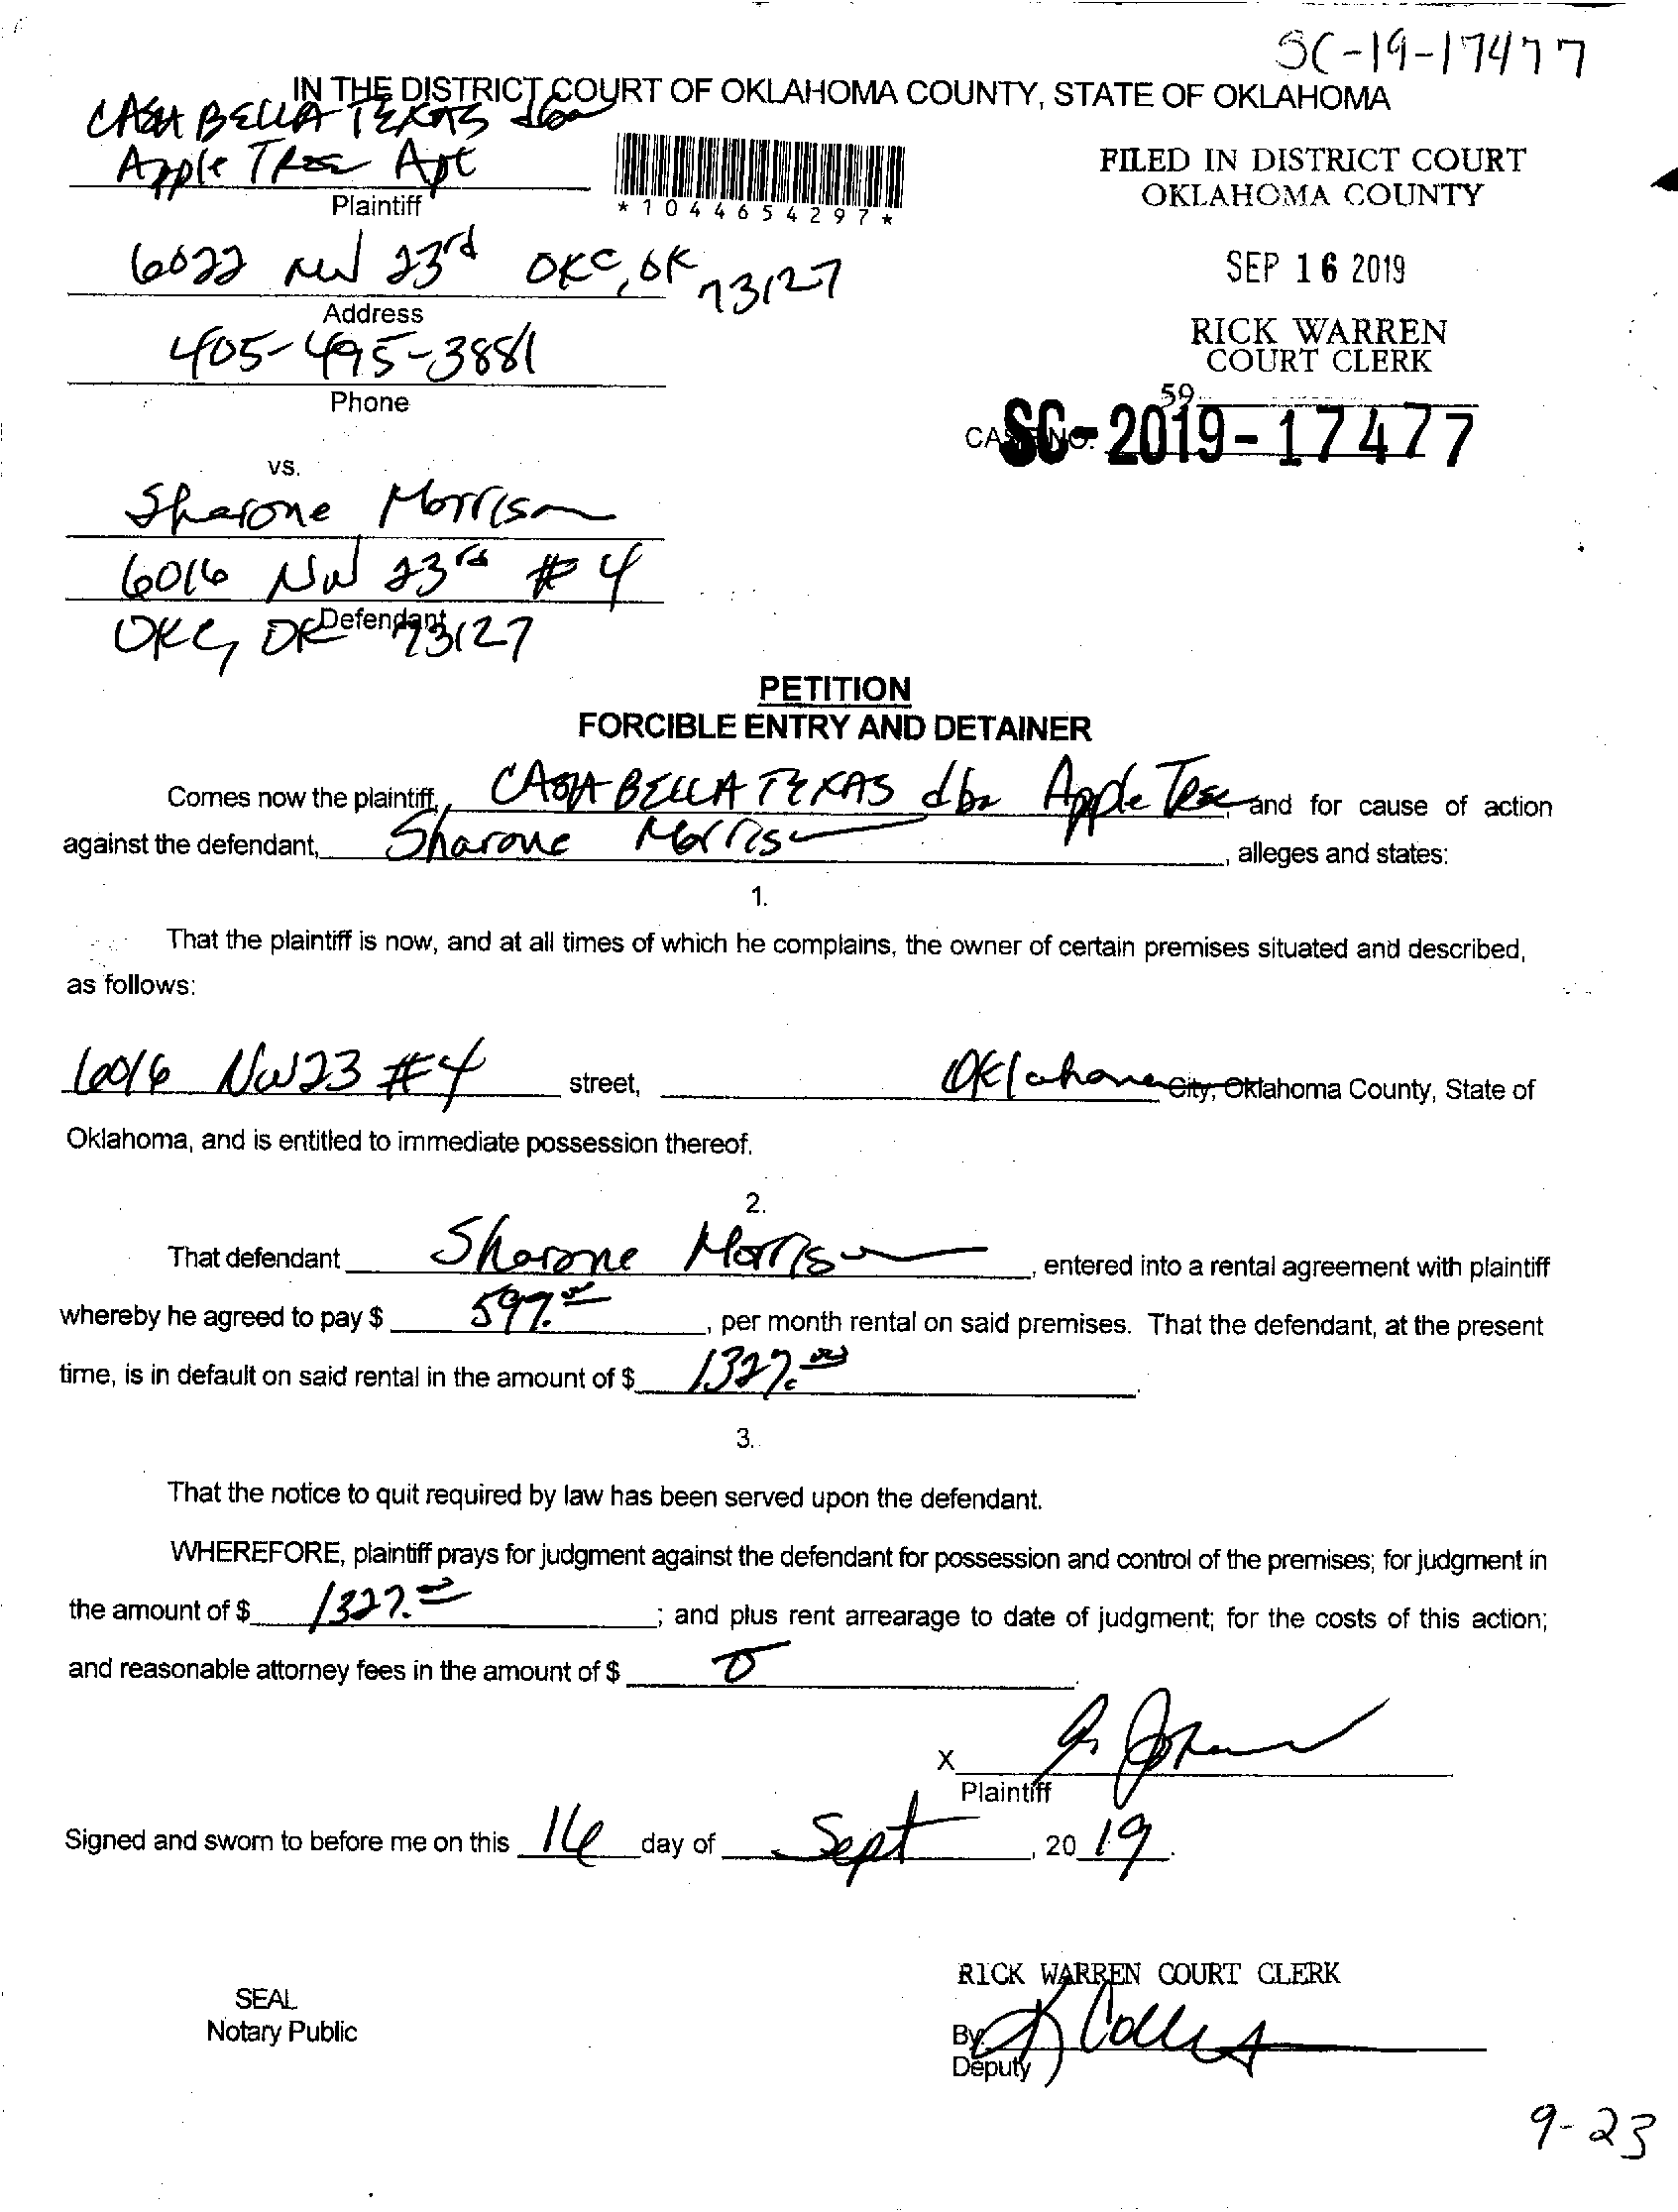 SC-19-17477
IN THE DISTRICT COURT OF OKLAHOMA COUNTY, STATE OF OKLAHOMA
CASA BELLA TEXAS dba
Apple Tree Apt
Plaintiff
*1044654297*
FILED IN DISTRICT COURT
OKLAHOMA COUNTY
6022 NW 23rd OKC, OK 73127
Address
SEP 16 2019
405-495-3881
Phone
RICK WARREN
COURT CLERK
59
CASE NO. SC-2019-17477
vs.
Sharone Morrison
6016 NW 23rd #4
Defendant
OKC, OK 73127
PETITION
FORCIBLE ENTRY AND DETAINER
Comes now the plaintiff, CASA BELLA TEXAS dba Apple Tree, and for cause of action
against the defendant, Sharone Morrison, alleges and states:
1.
That the plaintiff is now, and at all times of which he complains, the owner of certain premises situated and described,
as follows:
6016 NW 23 #4 street, Oklahoma City, Oklahoma County, State of
Oklahoma, and is entitled to immediate possession thereof.
2.
That defendant Sharone Morrison, entered into a rental agreement with plaintiff
whereby he agreed to pay $ 597.00, per month rental on said premises. That the defendant, at the present
time, is in default on said rental in the amount of $ 1327.00.
3.
That the notice to quit required by law has been served upon the defendant.
WHEREFORE, plaintiff prays for judgment against the defendant for possession and control of the premises; for judgment in
the amount of $ 1327.00; and plus rent arrearage to date of judgment; for the costs of this action;
and reasonable attorney fees in the amount of $ 0.
X
Plaintiff
Signed and sworn to before me on this 16 day of Sept, 20 19.
RICK WARREN COURT CLERK
SEAL
Notary Public
By
Deputy
9-23